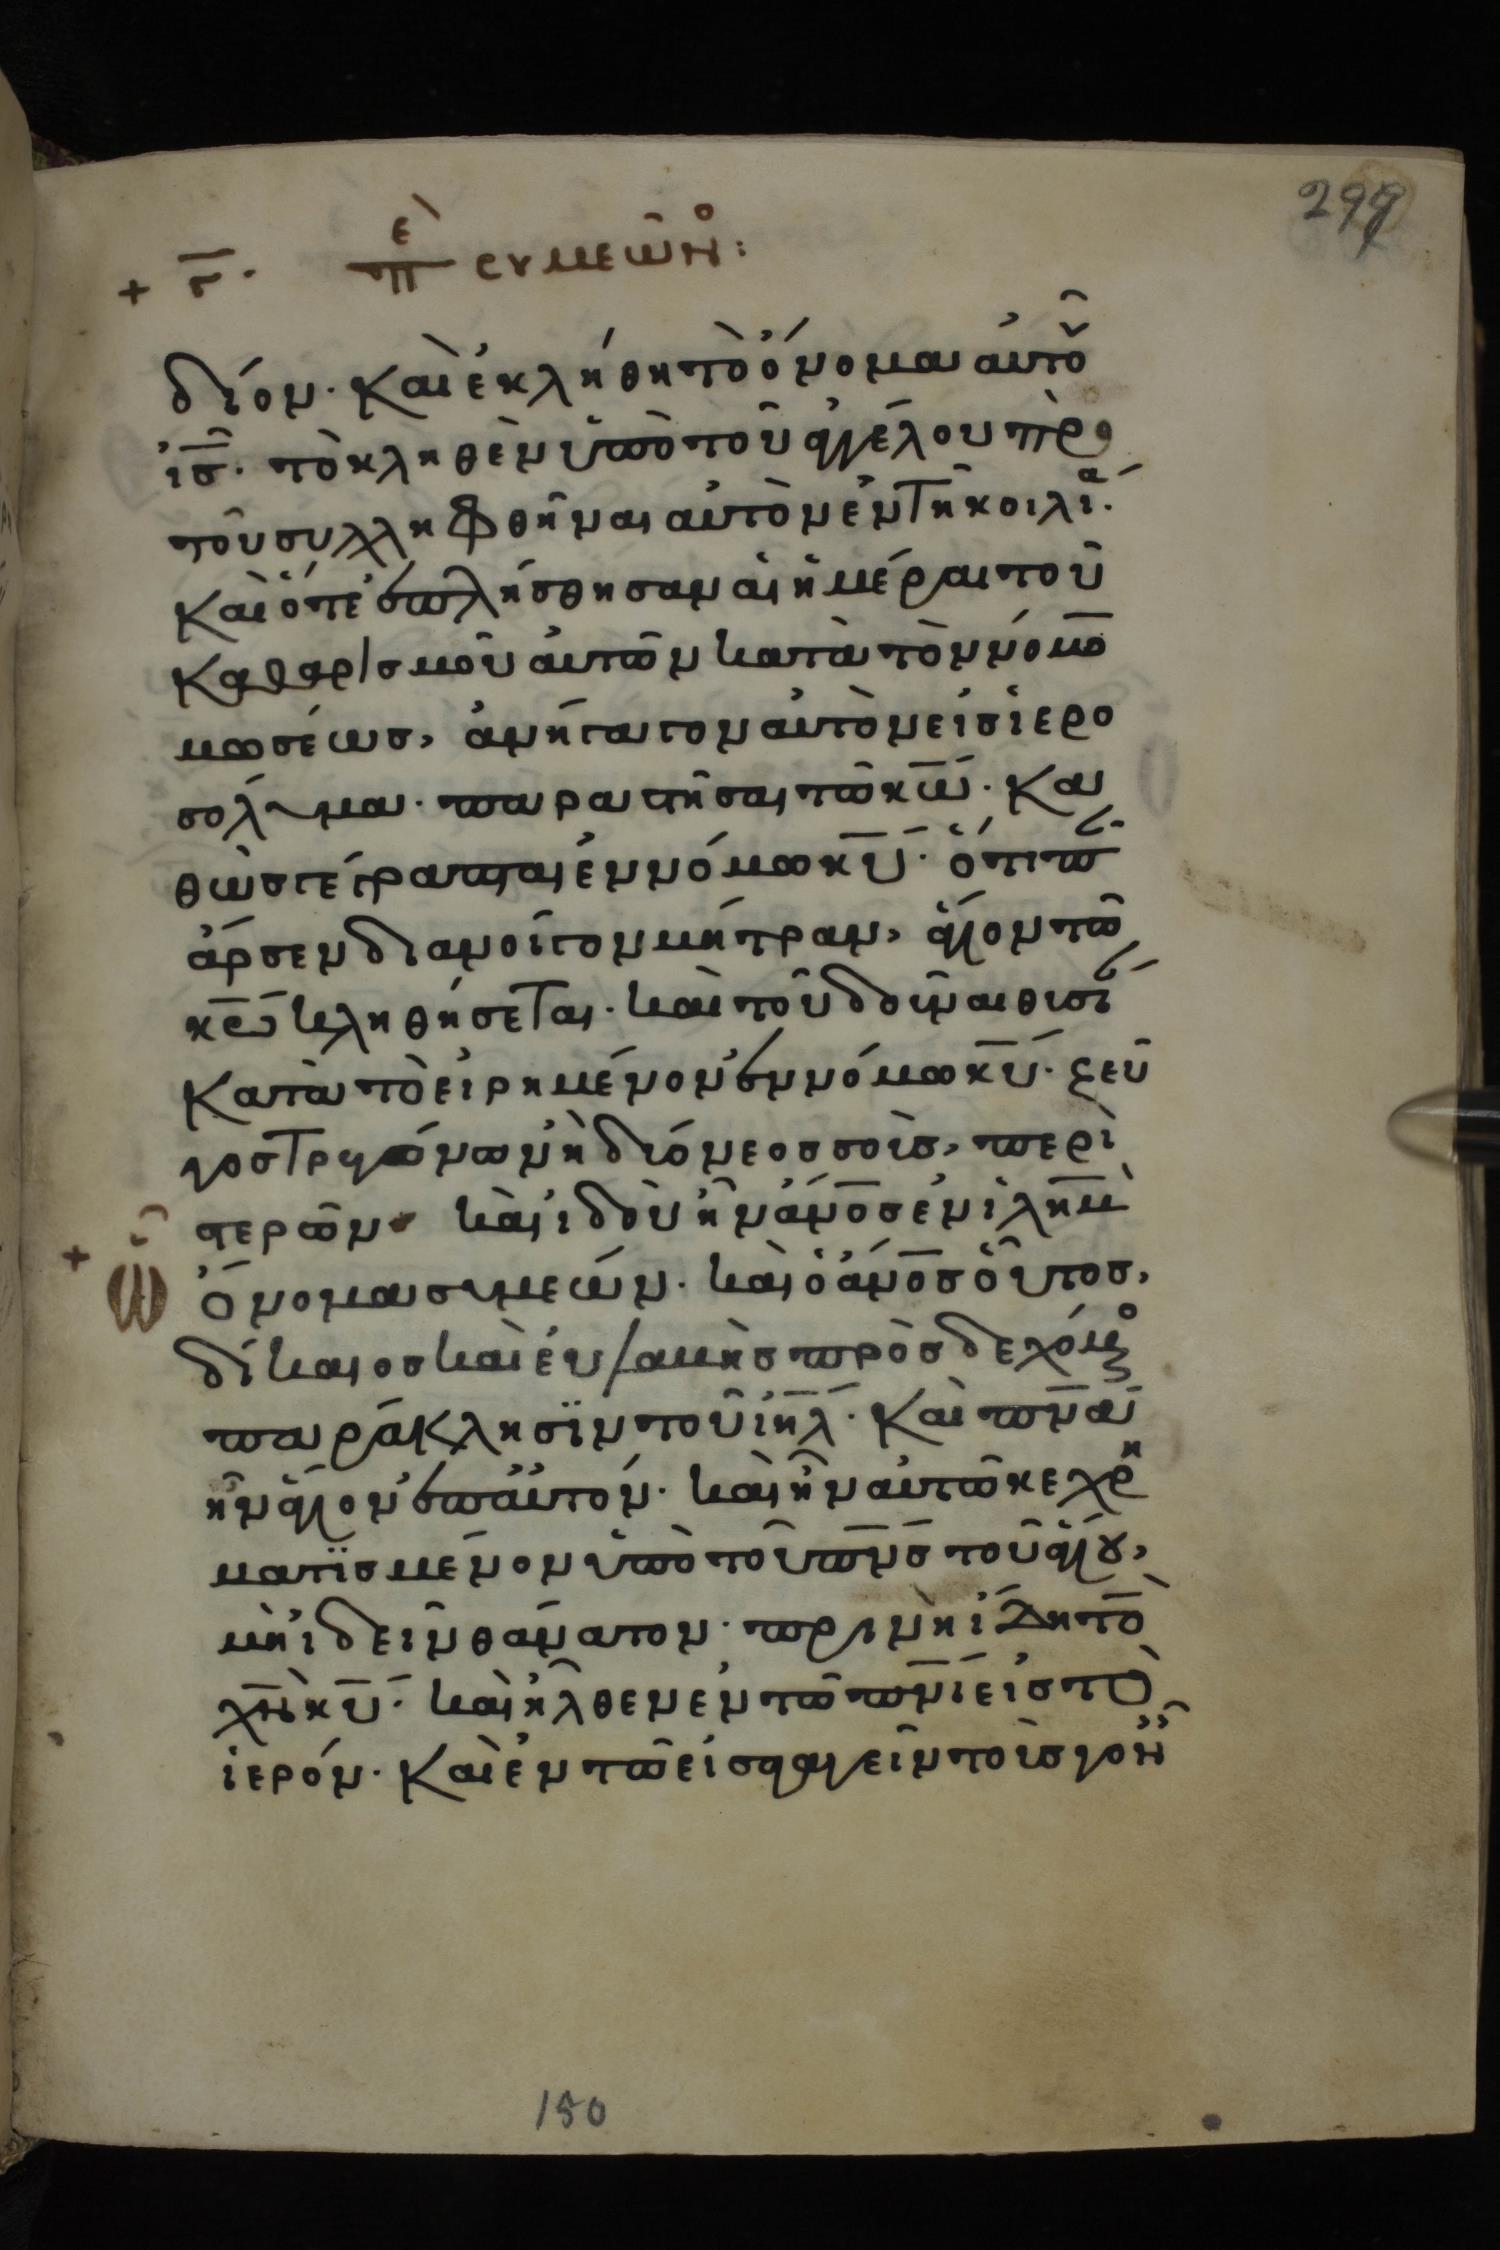 299
+ γ̅. πὲ συμεῶνο:
δίον· καὶ ἐκλήθη τὸ ὄνομα αὐτοῦ
ις̅· τὸ κληθὲν ὑπὸ τοῦ ἀγγέλου πρὸ
τοῦ συλληφθῆναι αὐτὸν ἐν τῆ κοιλία·
Καὶ ὅτε ἐπλήσθησαν αἱ ἡμέραι τοῦ
καθαρισμοῦ αὐτῶν κατὰ τὸν νόμο
μωσέως, ἀνήγαγον αὐτὸν εἰς ἱερο
σόλυμα· παραστῆσαι τῶ κω̅· κα
θὼς γέγραπται ἐν νόμω κυ̅· ὅτι πᾶ
ἄρσεν διανοῖγον μήτραν, ἅγιον τῶ
κω̅ κληθήσεται· καὶ τοῦ δοῦναι θυσί
κατὰ τὸ εἰρημένον ἐν νόμω κυ̅· ζεῦ
γος τρυγόνων ἢ δύο νεοσσοὺς, περι
στερῶν· καὶ ἰδοὺ ἦν ἀνο̅ς ἐν ἰλη̅μ
+ ω
ὄνομα συμεών· καὶ ὁ ἀνο̅ς οὗτος,
δίκαιος καὶ εὐλαβὴς προσδεχόμενο
παράκλησϊν τοῦ ιη̅λ· καὶ πνα̅
ἦν ἅγιον ἐπ' αὐτόν· καὶ ἦν αὐτῶ κεχρη
ματϊσμένον ὑπὸ τοῦ πνς̅ τοῦ ἁγίου,
μὴ ἰδεῖν θάνατον· πρὶν ἢ ἴδη τὸ
χν̅ κυ̅· καὶ ἦλθεν ἐν τῶ πνι̅ εἰς τὸ
ἱερόν· καὶ ἐν τῶ εἰσαγαγεῖν τοὺς γον
150